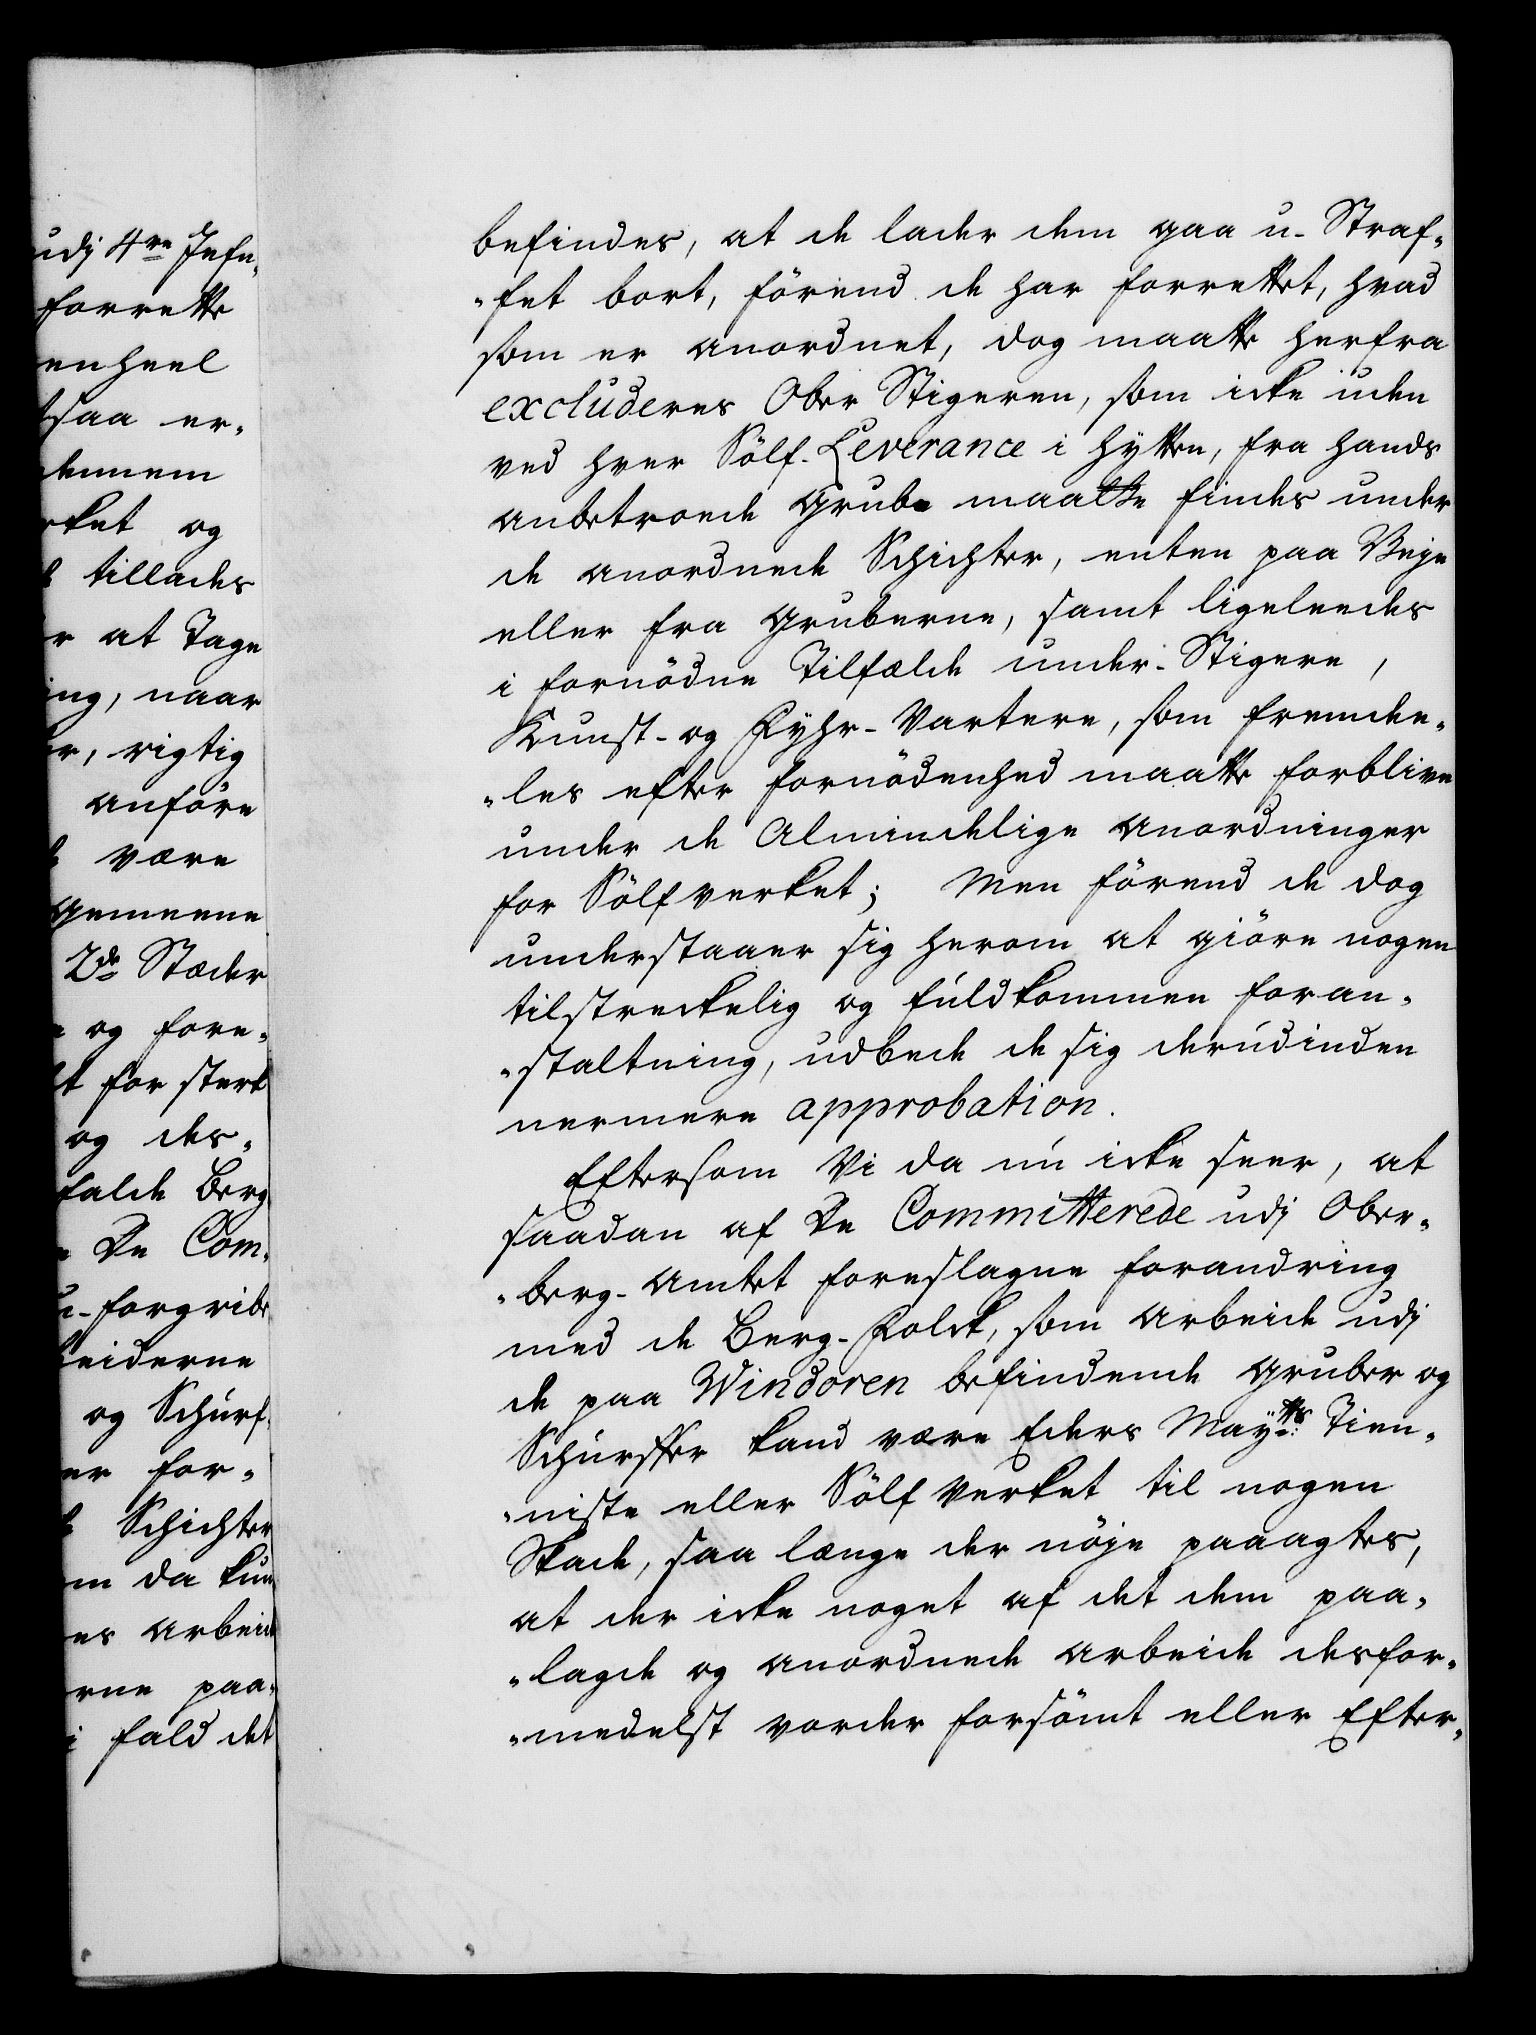 udj 4re Jefn„
forrette
enheel
saa er„
dennem
rket og
tillades
r at Tage
ing, naar
er, rigtig
anföre
være
gemeene
2de Stæder
og fore„
t for sterk
og des„
falde Berg
De Com„
u-forgribe
beiderne
og Schurf„
er for„
Schichter
m da kun
es Arbeid
rne paa„
i fald det
befindes, at de lader dem gaa u-Straf„
„fet bort, förend de har forrettet, hvad
som er anordnet, dog maatte herfra
excluderes Ober Stigeren, som icke uden
ved hver Sölf-Leverance i Hytten, fra hands
anbetroede Grube maatte findes under
de anordnede Schichter, enten paa Veje
eller fra Gruberne, samt ligeleedes
i fornödne Tilfælde under-Stigere,
Kunst- og Fyhr-Vartere, som fremde„
„les efter fornödenhed maatte forblive
under de Almindelige Anordninger
for Sölfverket; Men förend de dog
understaaer sig herom at giöre nogen
tilstreckelig og fuldkommen foran„
„staltning, udbede de sig derudinden
nermere approbation.
Eftersom Vi da nu icke seer, at
saadan af De Committerede udj Ober„
„berg-Amtet foreslagne forandring
med de Berg-Folck, som Arbeide udj
de paa Vindoren befindende Gruber og
Schürffer kand være Eders Mayts: Tien„
„niste eller Sölf Verket til nogen
Skade, saa længe der nöje paaagtes,
at der icke noget af det dem paa„
„lagde og anordnede Arbeide desfor„
„medelst vorder forsömt eller Efter„